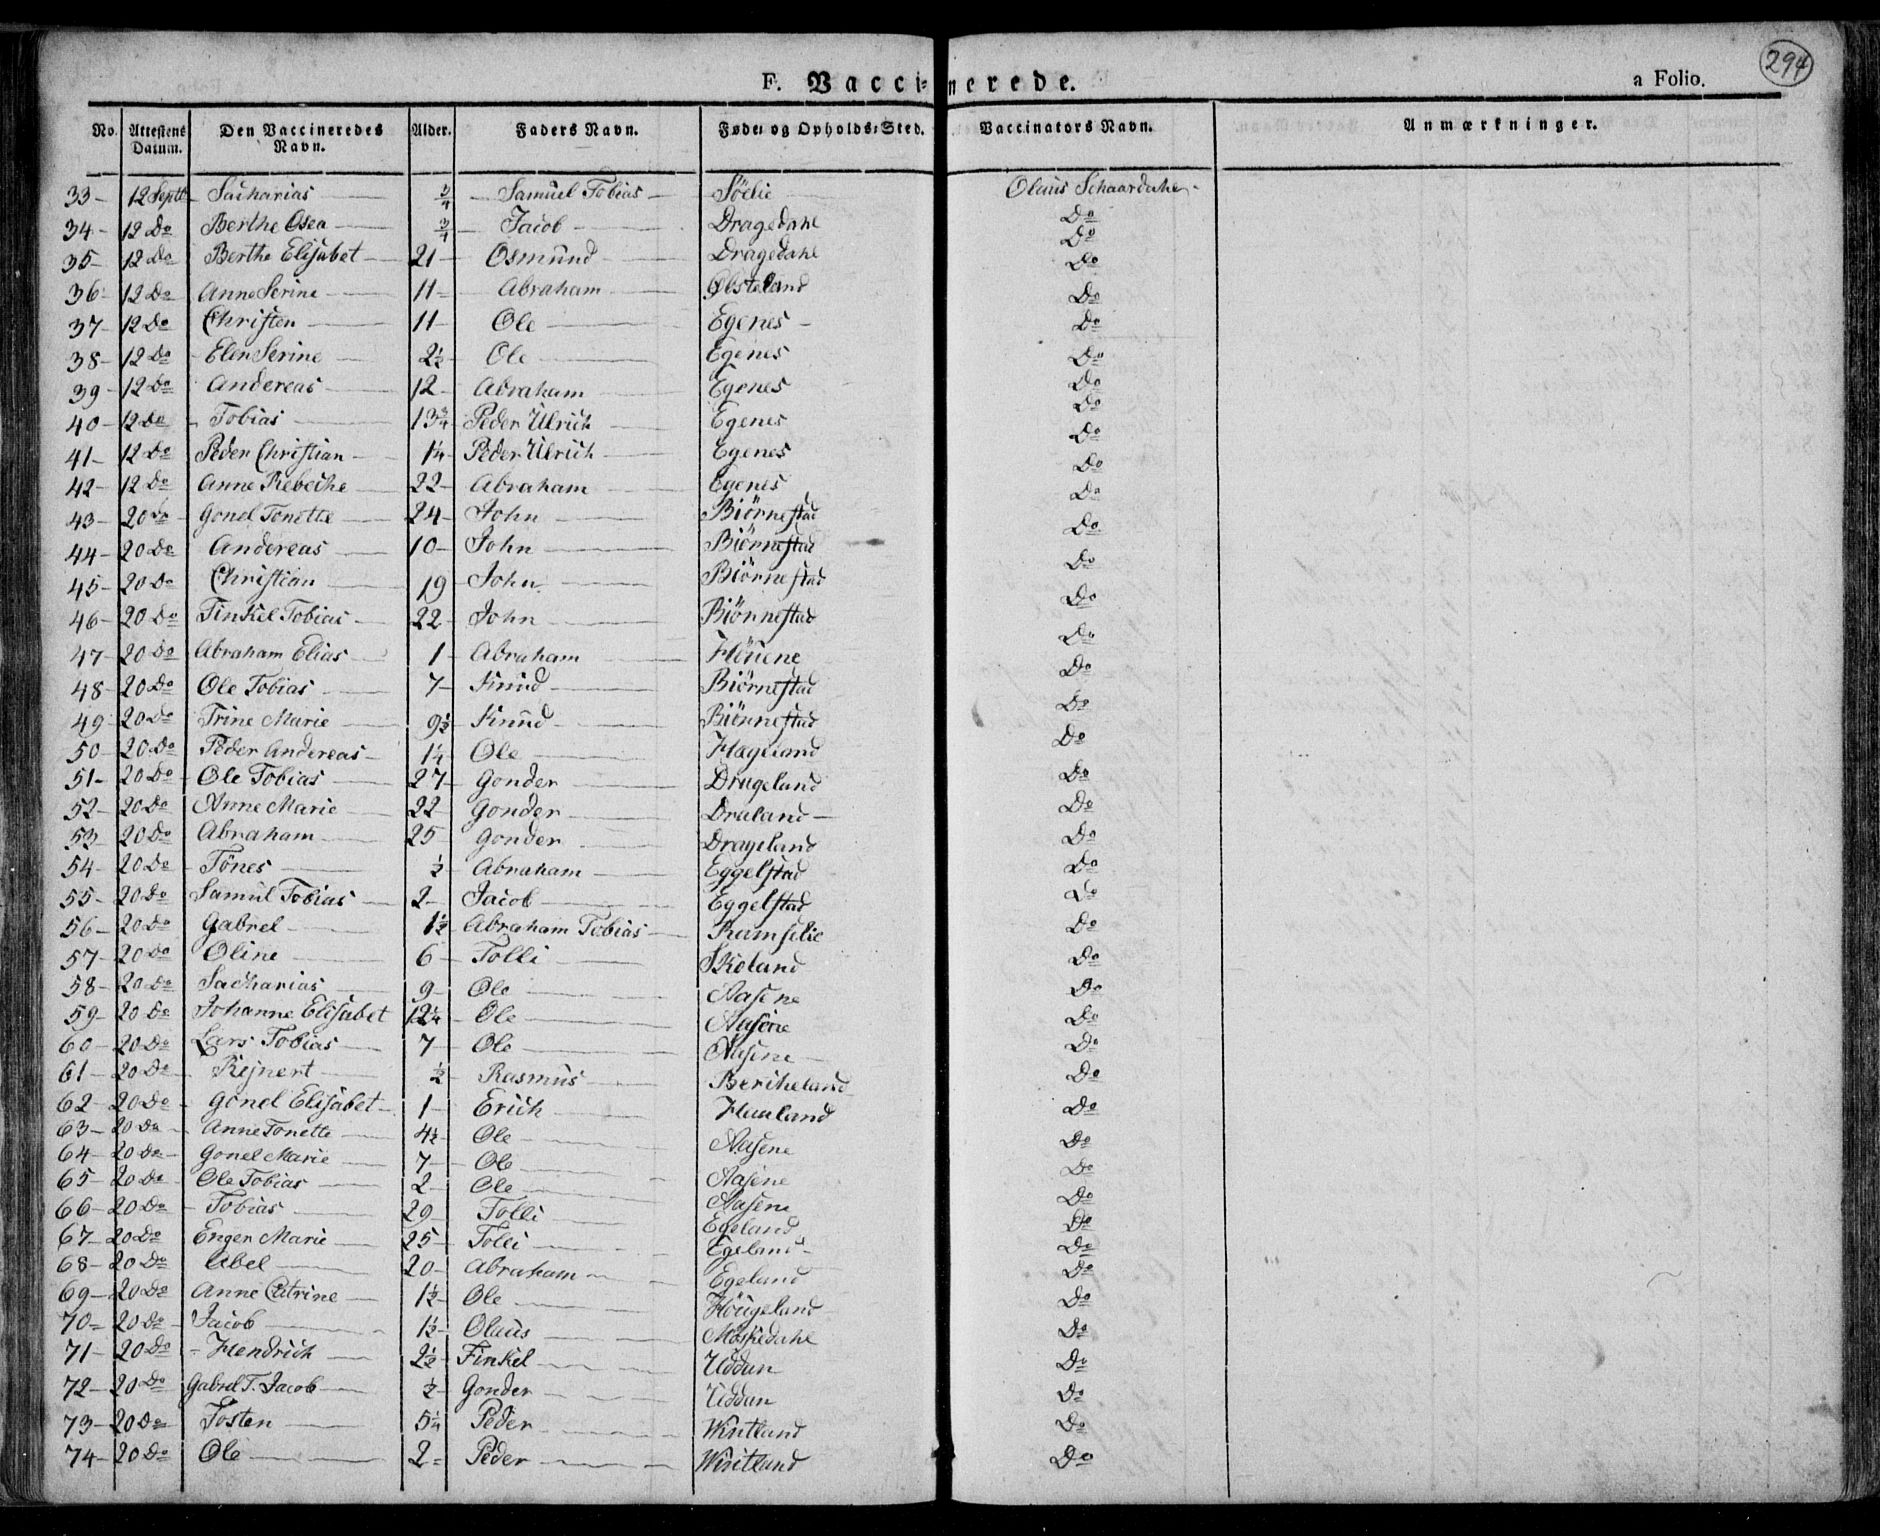 294
F. Vaccinerede. a Folio.
No. Attestens Datum. Den Vaccineredes Navn. Alder. Faders Navn. Føde- og Opholds-Sted. Vaccinators Navn. Anmærkninger.
33- 12 Septb Sacharias 3/4 Samuel Tobias Olaus
34- 12 Do Berthe Osea 3/4 Jacob Dragedahl Do
35- 12 Do Berthe Elisabet 21 Osmund Dragedahl Do
36- 12 Do Anne Serine 11 Abraham Do
37- 12 Do Christen 11 Ole Egenes Do
38- 12 Do Elen Serine 2½ Ole Egenes Do
39- 12 Do Andereas 12 Abraham Egenes Do
40- 12 Do Tobias 13¾ Peder Ulrich Egenes Do
41- 12 Do Peder Christian 1¼ Peder Ulrich Egenes Do
42- 12 Do Anne Rebeche 22 Abraham Egenes Do
43- 20 Do Gonel Tonette 24 John Biørnestad Do
44- 20 Do Andereas 10 John Biørnestad Do
45- 20 Do Christian 19 John Biørnestad Do
46- 20 Do Tinkel Tobias 22 John Biørnestad Do
47- 20 Do Abraham Elias 1 Abraham Do
48- 20 Do Ole Tobias 7 Knud Biørnestad Do
49- 20 Do Trine Marie 9½ Knud Biørnestad Do
50- 20 Do Peder Andereas 1¼ Ole Do
51- 20 Do Ole Tobias 27 Gonder Drageland Do
52- 20 Do Anne Marie 22 Gonder Draland Do
53- 20 Do Abraham 25 Gonder Drageland Do
54- 20 Do Tönes ½ Abraham Eggelstad Do
55- 20 Do Samul Tobias 2 Jacob Eggelstad Do
56- 20 Do Gabrel 1½ Abraham Tobias Ramselie Do
57- 20 Do Oline 6 Tolli Skoland Do
58- 20 Do Sacharias 9 Ole Aasene Do
59- 20 Do Johanne Elisabet 12¼ Ole Aasene Do
60- 20 Do Lars Tobias 7 Ole Aasene Do
61- 20 Do Rejnert ½ Rasmus Bercheland Do
62- 20 Do Gonel Elisabet 1 Erich Do
63- 20 Do Anne Tonette 4½ Ole Aasene Do
64- 20 Do Gonel Marie 7 Ole Aasene Do
65- 20 Do Ole Tobias 2 Ole Aasene Do
66- 20 Do Tobias 29 Tolli Egeland Do
67- 20 Do Enger Marie 25 Tolli Egeland Do
68- 20 Do Abel 20 Abraham Egeland Do
69- 20 Do Anne Catrine 1½ Ole Hougeland Do
70- 20 Do Jacob 1½ Olaus Do
71- 20 Do Hendrich 2½ Finkel Uddan Do
72- 20 Do Gabrel T. Jacob ½ Gonder Uddan Do
73- 20 Do Tosten 5¼ Peder Wintland Do
74- 20 Do Ole 2 Peder Wintland Do